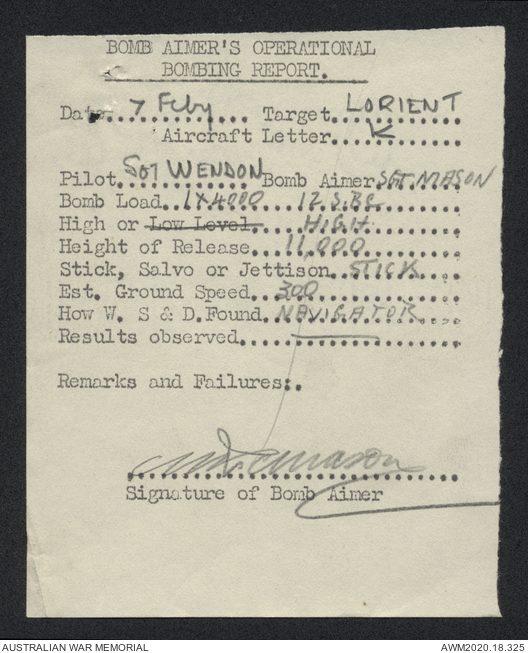 BOMB AIMER'S OPERATIONAL
BOMBING REPORT.
Date..7 Feby... Target.LORIENT
Aircraft Letter...K...
Pilot.SGT WENDON Bomb Aimer SGT. MASON
Bomb Load..1X4000 12 S.B.C.
High or Low Level. HIGH
Height of Release..11,000
Stick, Salvo or Jettison..STICK
Est. Ground Speed..300
How W. S & D.Found. NAVIGATOR
Results observed.
Remarks and Failures:.
Mason
Signature of Bomb Aimer
AUSTRALIAN WAR MEMORIAL
AWM2020.18.325